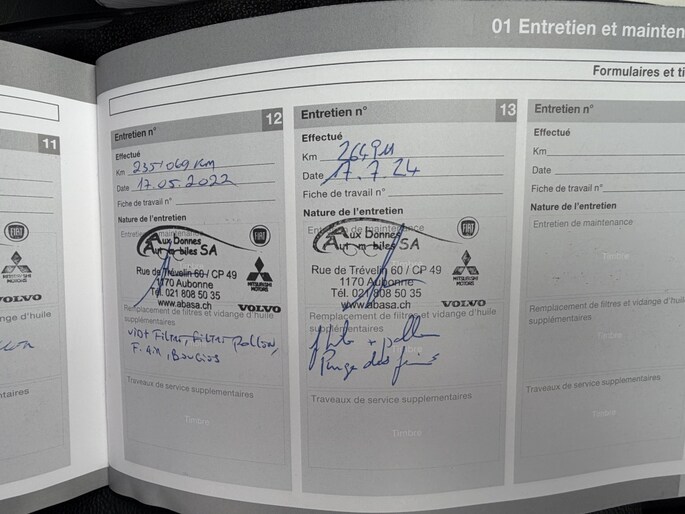 01 Entretien et mainten
Formulaires et ti
11
VOLVO
d'huile
entaires
Entretien n° 12
Effectué
Km 235'069 Km
Date 17.05.2022
Fiche de travail n°
Nature de l'entretien
Entretien de maintenance
Aux Bonnes
Automobiles SA
FIAT
Rue de Trévelin 60 / CP 49
1170 Aubonne
Tél. 021 808 50 35
www.abasa.ch
MITSUBISHI
MOTORS
VOLVO
Remplacement de filtres et vidange d'huile
supplémentaires
Filtre, Filtre pollen,
F. Air, Bougies
Traveaux de service supplementaires
Timbre
Entretien n° 13
Effectué
Km
Date 17.7.24
Fiche de travail n°
Nature de l'entretien
Entretien de maintenance
Aux Bonnes
Automobiles SA
FIAT
Rue de Trévelin 60 / CP 49
1170 Aubonne
Tél. 021 808 50 35
www.abasa.ch
MITSUBISHI
MOTORS
VOLVO
Remplacement de filtres et vidange d'huile
supplémentaires
+ pollen
Purge des freins
Traveaux de service supplementaires
Timbre
Entretien n°
Effectué
Km
Date
Fiche de travail n°
Nature de l'entretien
Entretien de maintenance
Timbre
Remplacement de filtres et vidange d'h
supplémentaires
Timbre
Traveaux de service supplementaires
Timbre